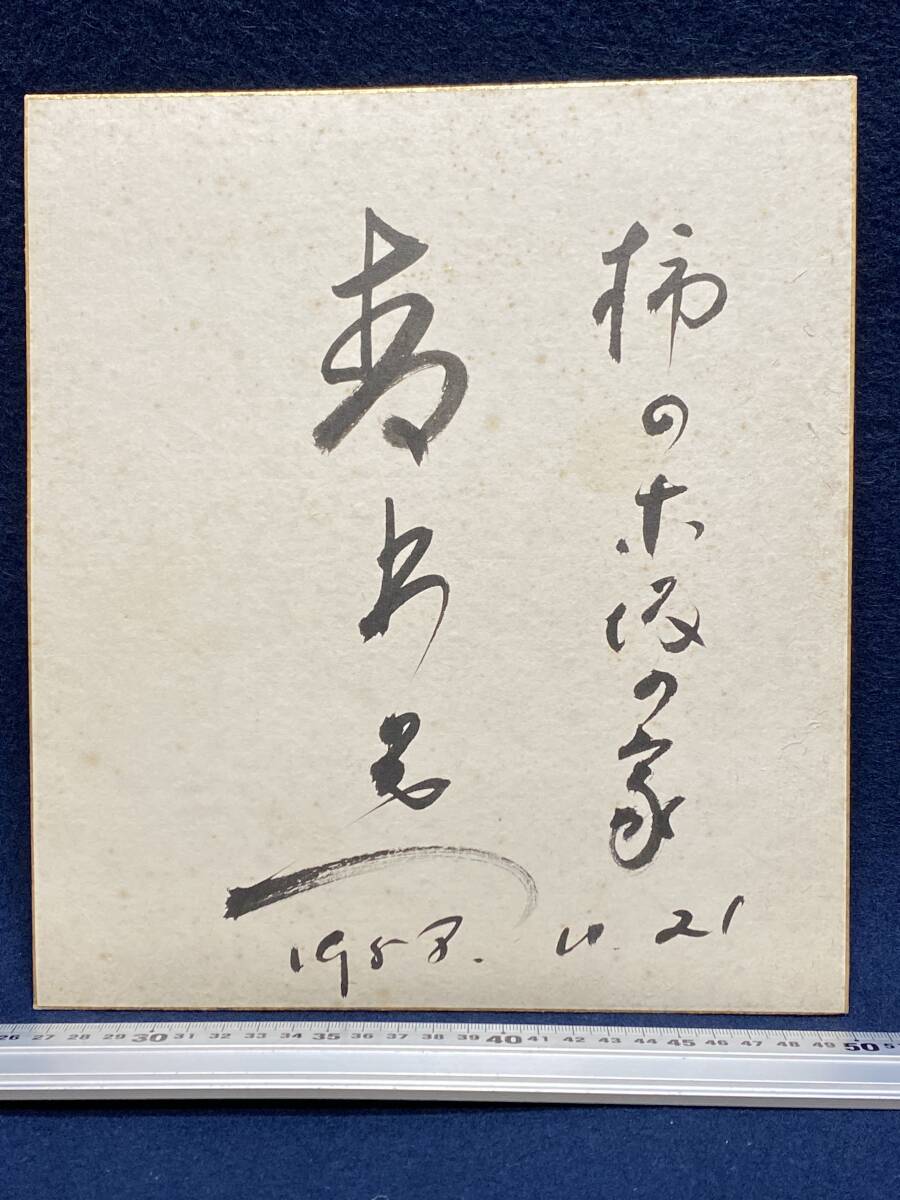 柿の木坂の家
青木光一
21
27 28 29 30 31 32 33 34 35 36 37 38 39 40 41 42 43 44 45 46 47 48 49 50